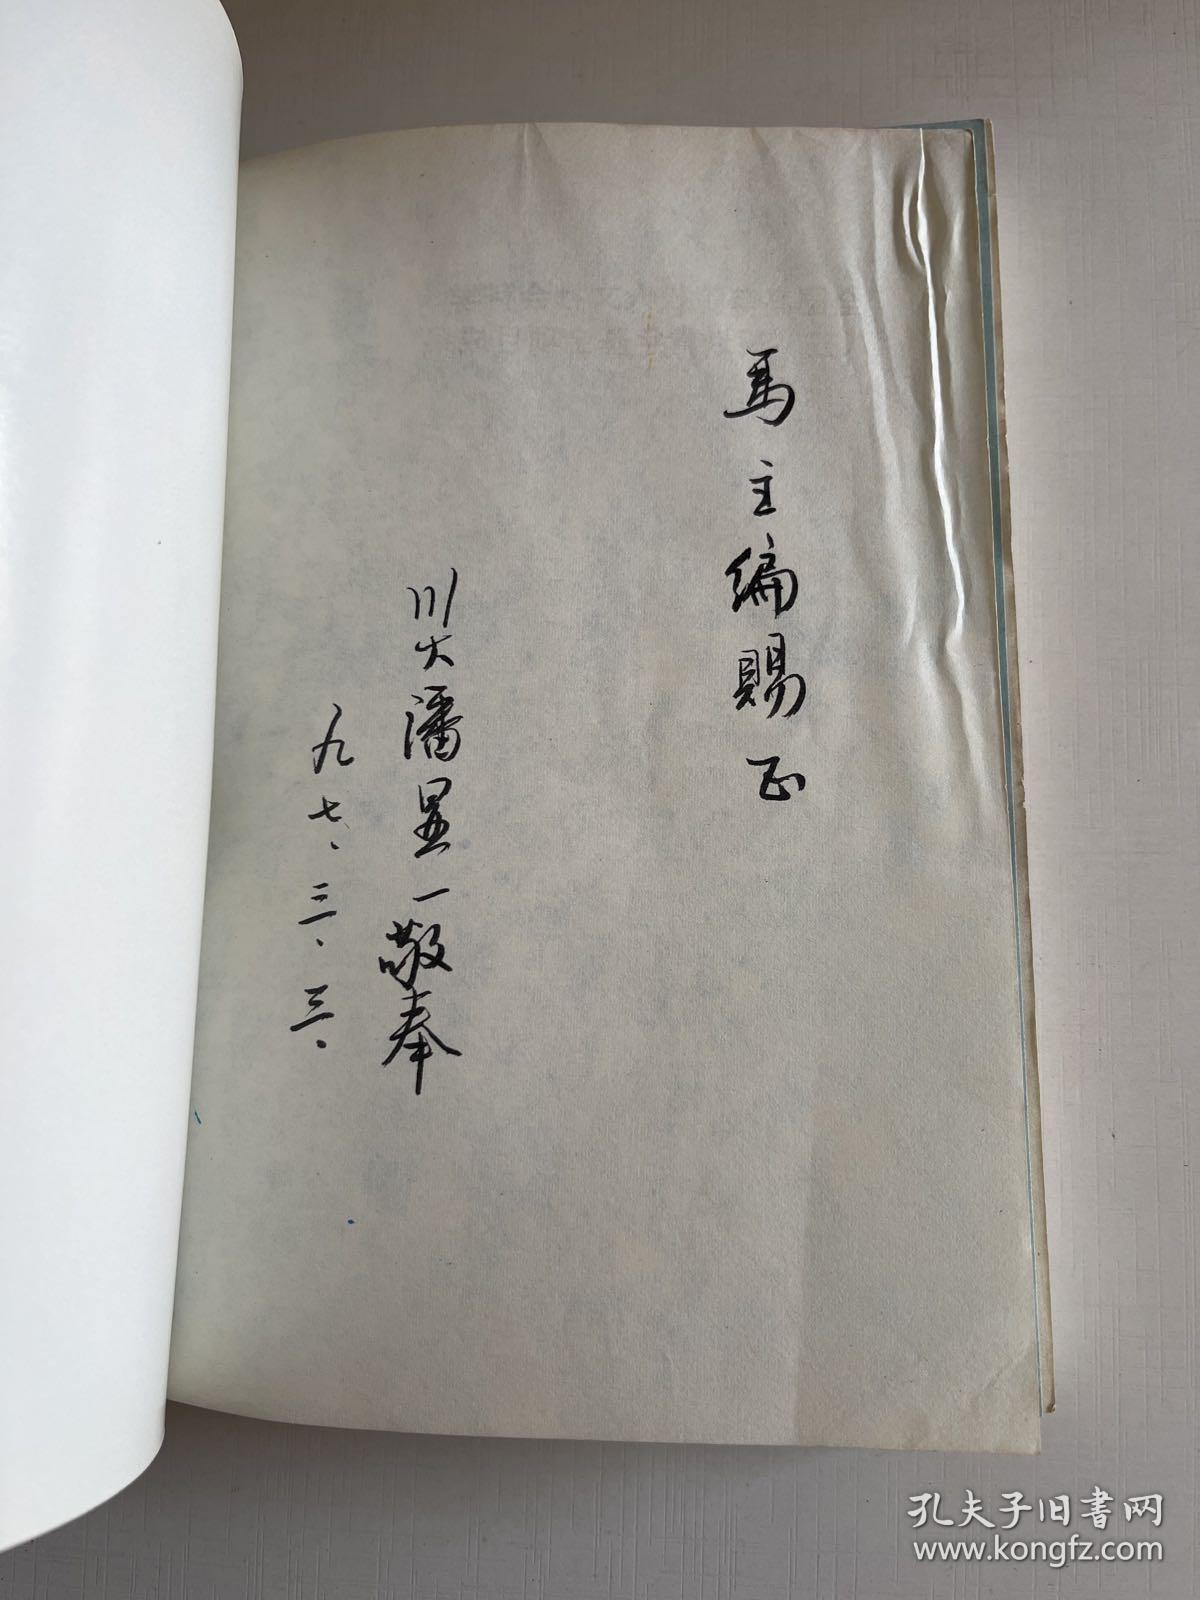 馬主编賜正
川大潘显一敬奉
九七、三、三、
孔夫子旧书网
www.kongfz.com